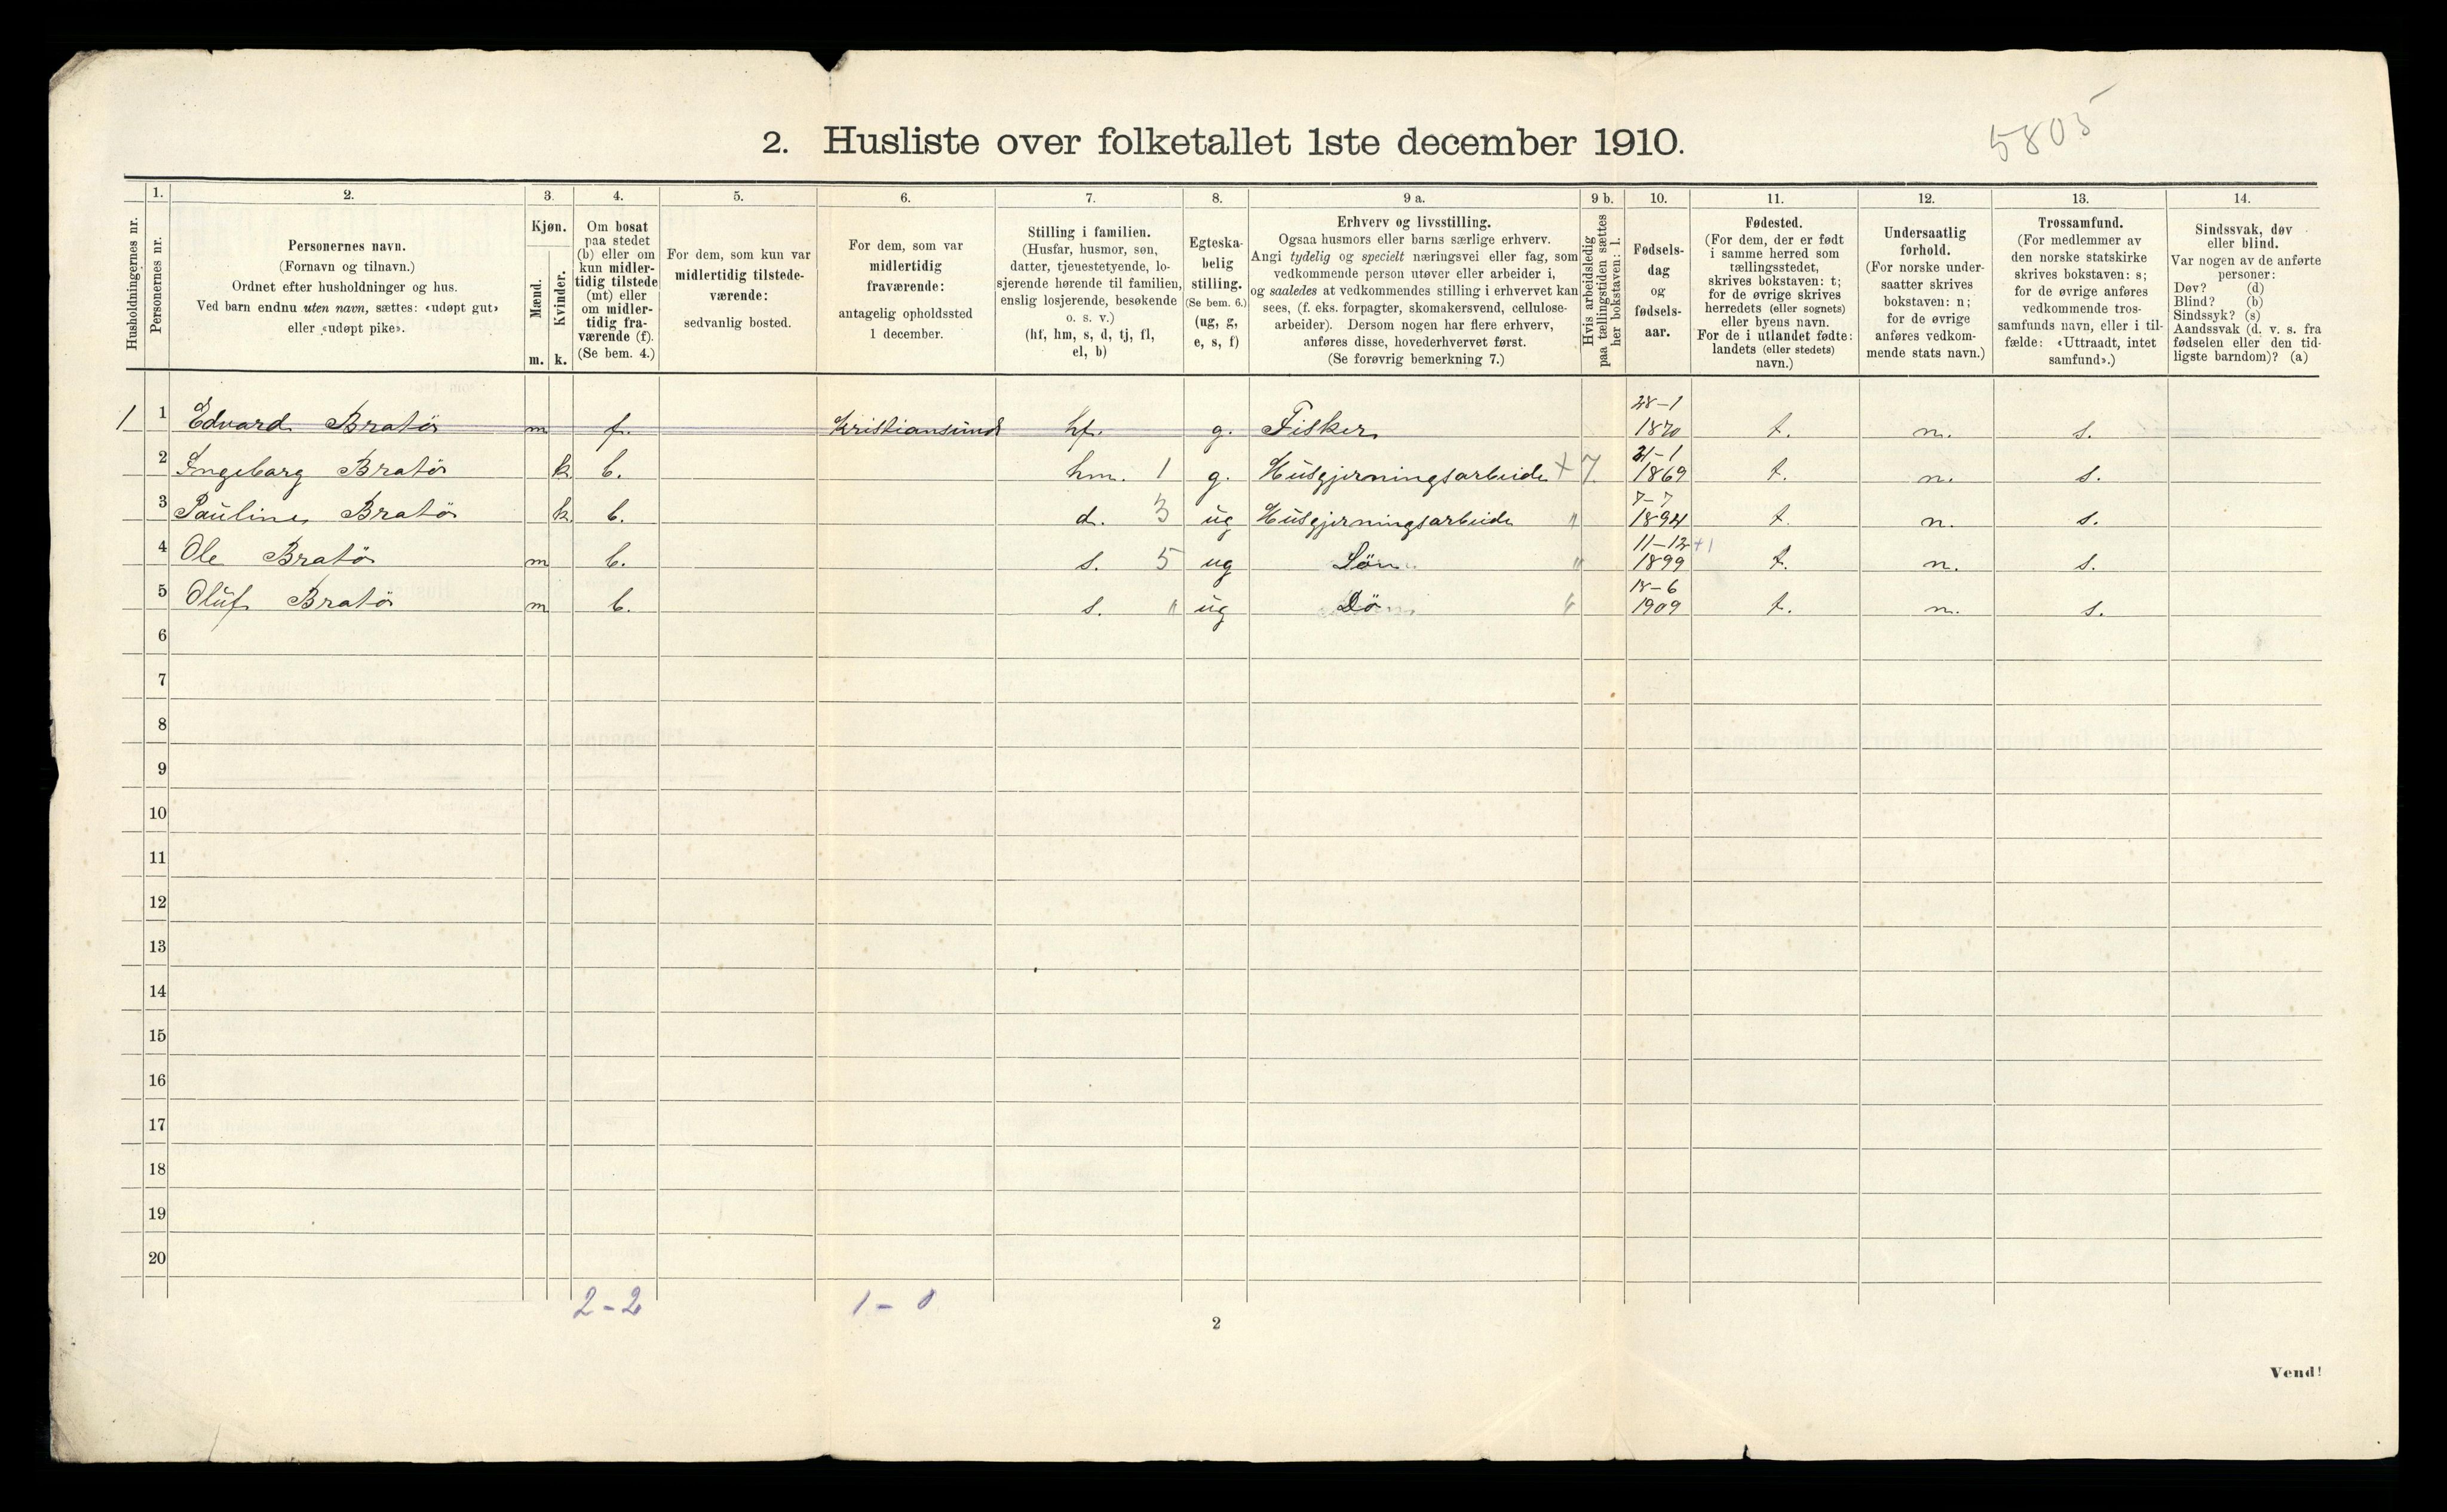 5805
2. Husliste over folketallet 1ste december 1910.
Husholdningernes nr.
1.
Personernes nr.
2.
Personernes navn.
(Fornavn og tilnavn.)
Ordnet efter husholdninger og hus.
Ved barn endnu uten navn, sættes: «udøpt gut»
eller «udøpt pike».
3.
Kjøn.
Mænd.
m.
Kvinder.
k.
4.
Om bosat
paa stedet
(b) eller om
kun midler-
tidig tilstede
(mt) eller
om midler-
tidig fra-
værende (f).
(Se bem. 4.)
5.
For dem, som kun var
midlertidig tilstede-
værende:
sedvanlig bosted.
6.
For dem, som var
midlertidig
fraværende:
antagelig opholdssted
1 december.
7.
Stilling i familien.
(Husfar, husmor, søn,
datter, tjenestetyende, lo-
sjerende hørende til familien,
enslig losjerende, besøkende
o. s. v.)
(hf, hm, s, d, tj, fl,
el, b)
8.
Egteska-
belig
stilling.
(Se bem. 6.)
(ug, g,
e, s, f)
9 a.
Erhverv og livsstilling.
Ogsaa husmors eller barns særlige erhverv.
Angi tydelig og specielt næringsvei eller fag, som
vedkommende person utøver eller arbeider i,
og saaledes at vedkommendes stilling i erhvervet kan
sees, (f. eks. forpagter, skomakersvend, cellulose-
arbeider). Dersom nogen har flere erhverv,
anføres disse, hovederhvervet først.
(Se forøvrig bemerkning 7.)
9 b.
Hvis arbeidsledig
paa tællingstiden sættes
her bokstaven: l.
10.
Fødsels-
dag
og
fødsels-
aar.
11.
Fødested.
(For dem, der er født
i samme herred som
tællingsstedet,
skrives bokstaven: t;
for de øvrige skrives
herredets (eller sognets)
eller byens navn.
For de i utlandet fødte:
landets (eller stedets)
navn.)
12.
Undersaatlig
forhold.
(For norske under-
saatter skrives
bokstaven: n;
for de øvrige
anføres vedkom-
mende stats navn.)
13.
Trossamfund.
(For medlemmer av
den norske statskirke
skrives bokstaven: s;
for de øvrige anføres
vedkommende tros-
samfunds navn, eller i til-
fælde: «Uttraadt, intet
samfund».)
14.
Sindssvak, døv
eller blind.
Var nogen av de anførte
personer:
Døv? (d)
Blind? (b)
Sindssyk? (s)
Aandssvak (d. v. s. fra
fødselen eller den tid-
ligste barndom)? (a)
1 1 Edvard Bratör m f. Kristiansund hf. g. Fisker 28-1 1870 t. n. s.
2 Ingeborg Bratör k b. hm. 1 g. Husgjerningsarbeide + 7 21-1 1869 t. n. s.
3 Pauline Bratör k b. d. 3 ug Husgjerningsarbeide " 7-7 1894 t. n. s.
4 Ole Bratör m b. s. 5 ug Sön " 11-12 +1 1899 t. n. s.
5 Oluf Bratör m b. s. " ug Dö " 18-6 1909 t. n. s.
6
7
8
9
10
11
12
13
14
15
16
17
18
19
20
2-2 1-0
2
Vend!